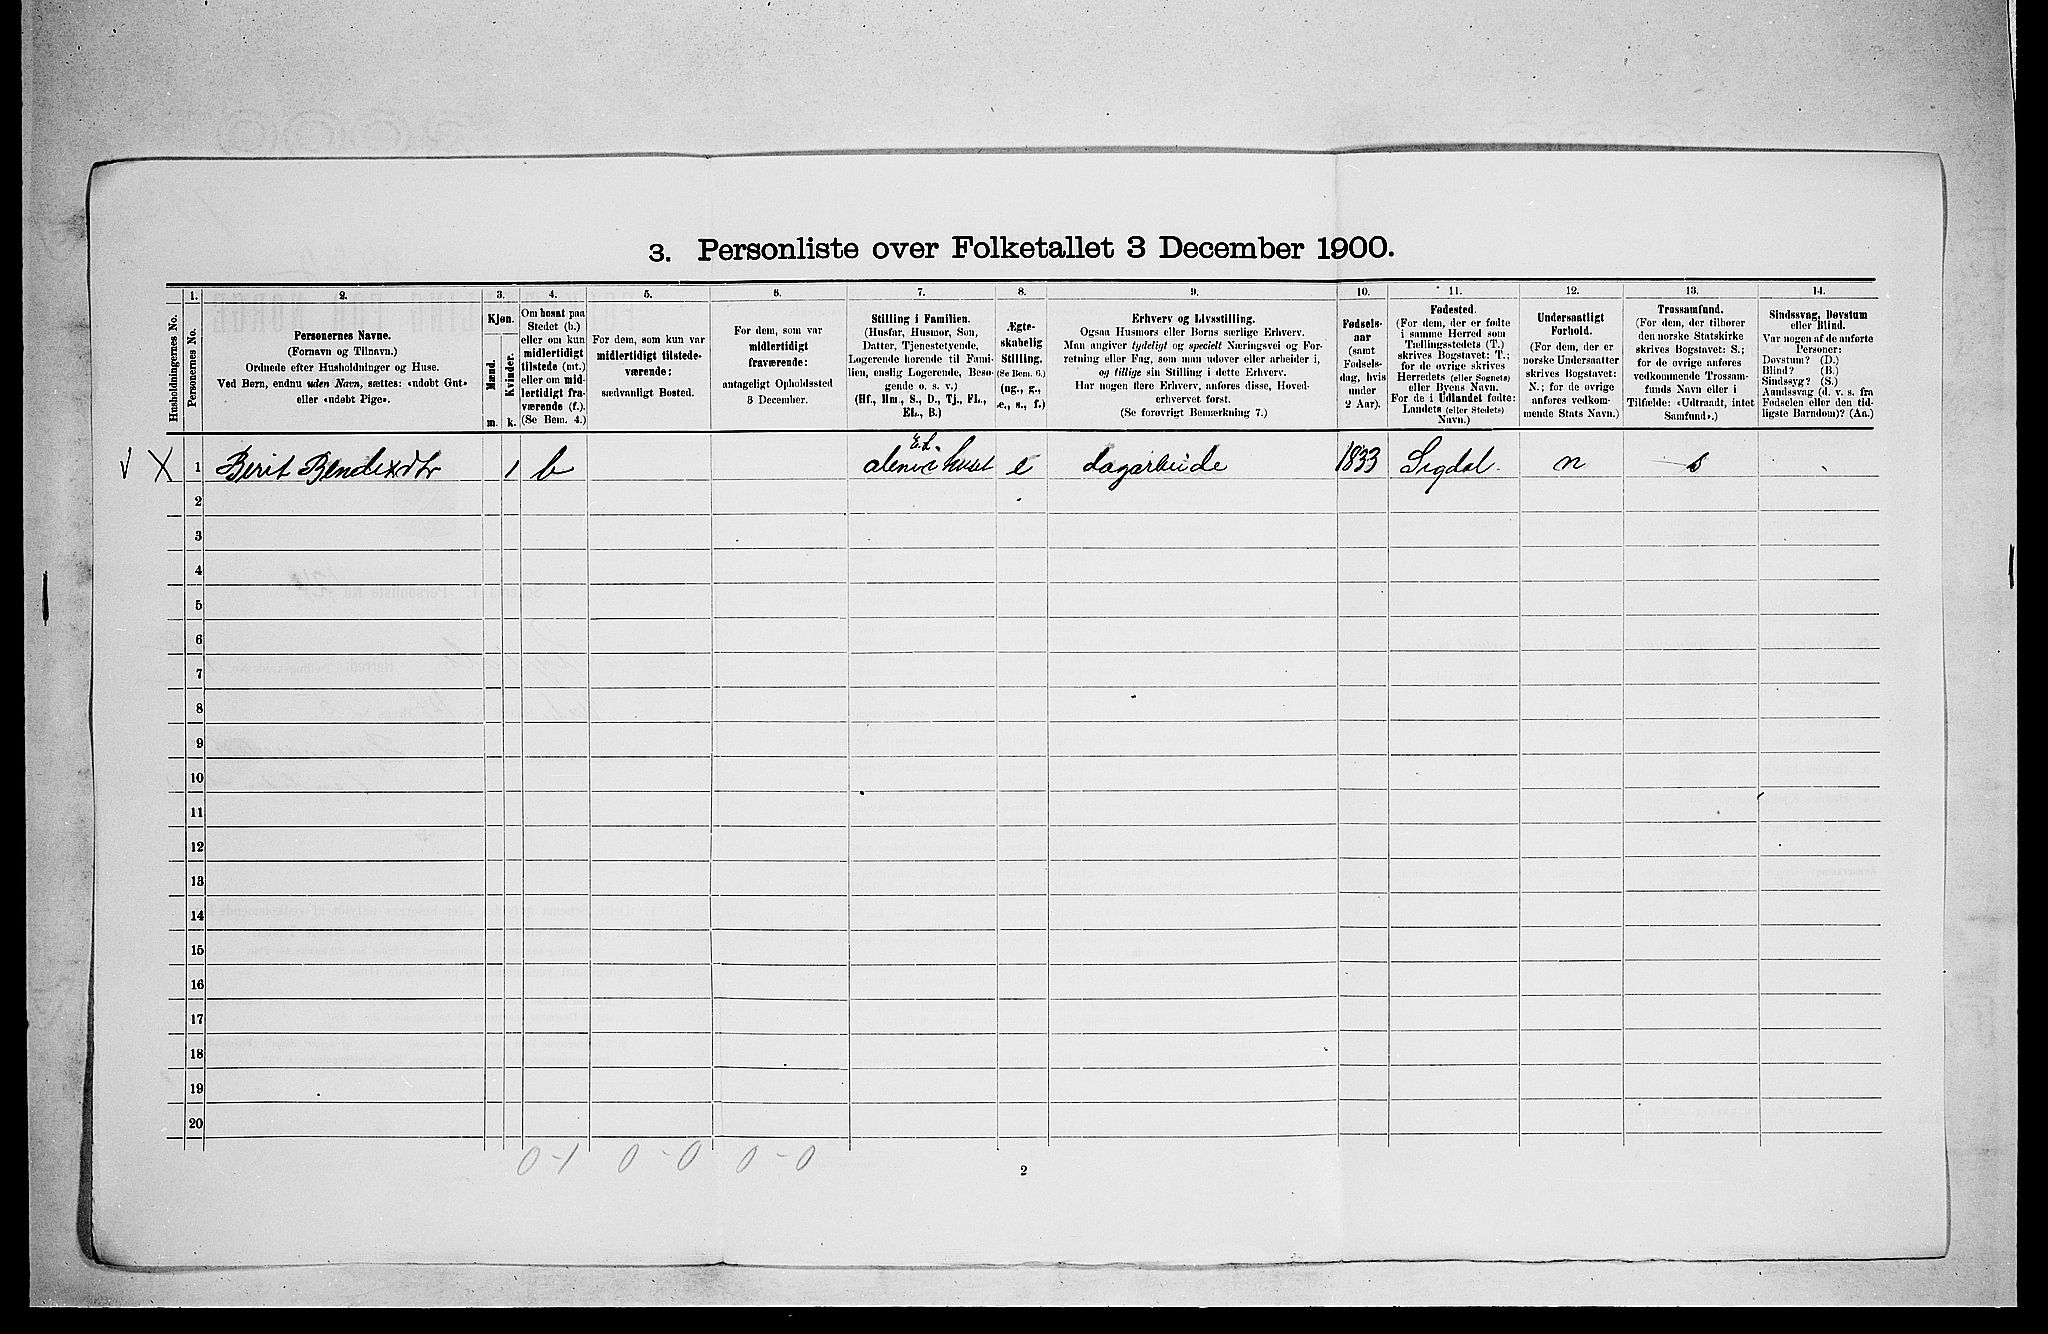 3. Personliste over Folketallet 3 December 1900.
1. 2. 3. 4. 5. 6. 7. 8. 9. 10. 11. 12. 13. 14.
Husholdningernes No.
Personernes No.
Personernes Navne.
(Fornavn og Tilnavn.)
Ordnede efter Husholdninger og Huse.
Ved Børn, endnu uden Navn, sættes: «udøbt Gut»
eller «udøbt Pige».
Kjøn.
Mænd.
Kvinder.
m. k.
Om bosat paa
Stedet (b.)
eller om kun
midlertidigt
tilstede (mt.)
eller om mid-
lertidigt fra-
værende (f.).
(Se Bem. 4.)
For dem, som kun var
midlertidigt tilstede-
værende:
sædvanligt Bosted.
For dem, som var
midlertidigt
fraværende:
antageligt Opholdssted
3 December.
Stilling i Familien.
(Husfar, Husmor, Søn,
Datter, Tjenestetyende,
Logerende hørende til Fami-
lien, enslig Logerende, Besø-
gende o. s. v.)
(Hf., Hm., S., D., Tj., FL.,
EL., B.)
Ægte-
skabelig
Stilling.
(Se Bem. 6.)
(ug., g.,
e., s., f.)
Erhverv og Livsstilling.
Ogsaa Husmors eller Børns særlige Erhverv.
Man angiver tydeligt og specielt Næringsvei og For-
retning eller Fag, som man udøver eller arbeider i,
og tillige sin Stilling i dette Erhverv.
Har nogen flere Erhverv, anføres disse, Hoved-
erhvervet først.
(Se forøvrigt Bemerkning 7.)
Fødsels-
aar
(samt
Fødsels-
dag, hvis
under
2 Aar).
Fødested.
(For dem, der er fødte
i samme Herred som
Tællingsstedets (T.)
skrives Bogstavet: T.;
for de øvrige skrives
Herredets (eller Sognets)
eller Byens Navn.
For de i Udlandet fødte:
Landets (eller Stedets)
Navn.)
Undersaatligt
Forhold.
(For dem, der er
norske Undersaatter
skrives Bogstavet:
N.; for de øvrige
anføres vedkom-
mende Stats Navn.)
Trossamfund.
(For dem, der tilhører
den norske Statskirke
skrives Bogstavet: S.;
for de øvrige anføres
vedkommende Trossam-
funds Navn eller i
Tilfælde: «Udtraadt, intet
Samfund».)
Sindssvag, Døvstum
eller Blind.
Var nogen af de anførte
Personer:
Døvstum? (D.)
Blind? (B.)
Sindssyg? (S.)
Aandssvag (d. v. s. fra
Fødselen eller den tid-
ligste Barndom)? (Aa.)
E.L.
X 1 Berit Bendixdtr 1 b alene i huset e dagarbeide 1833 Sigdal n s
2
3
4
5
6
7
8
9
10
11
12
13
14
15
16
17
18
19
20
0-1 0-0 0-0
2